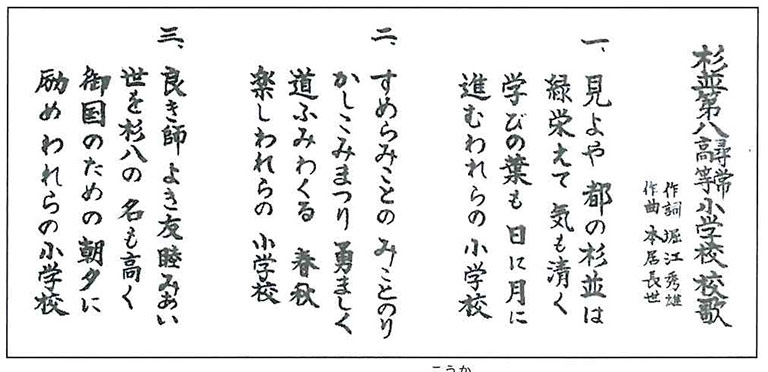 杉並第八尋常高等小学校 校歌
作詞 堀江秀雄
作曲 本居長世
一、見よや 都の杉並は
緑栄えて 気も清く
学びの葉も 日に月に
進むわれらの 小学校
二、すめらみことの みことのり
かしこみまつり 勇ましく
道ふみわくる 春秋
楽しわれらの 小学校
三、良き師 よき友 睦みあい
世を杉八の 名も高く
御国のための 朝夕に
励め われらの 小学校
こうか